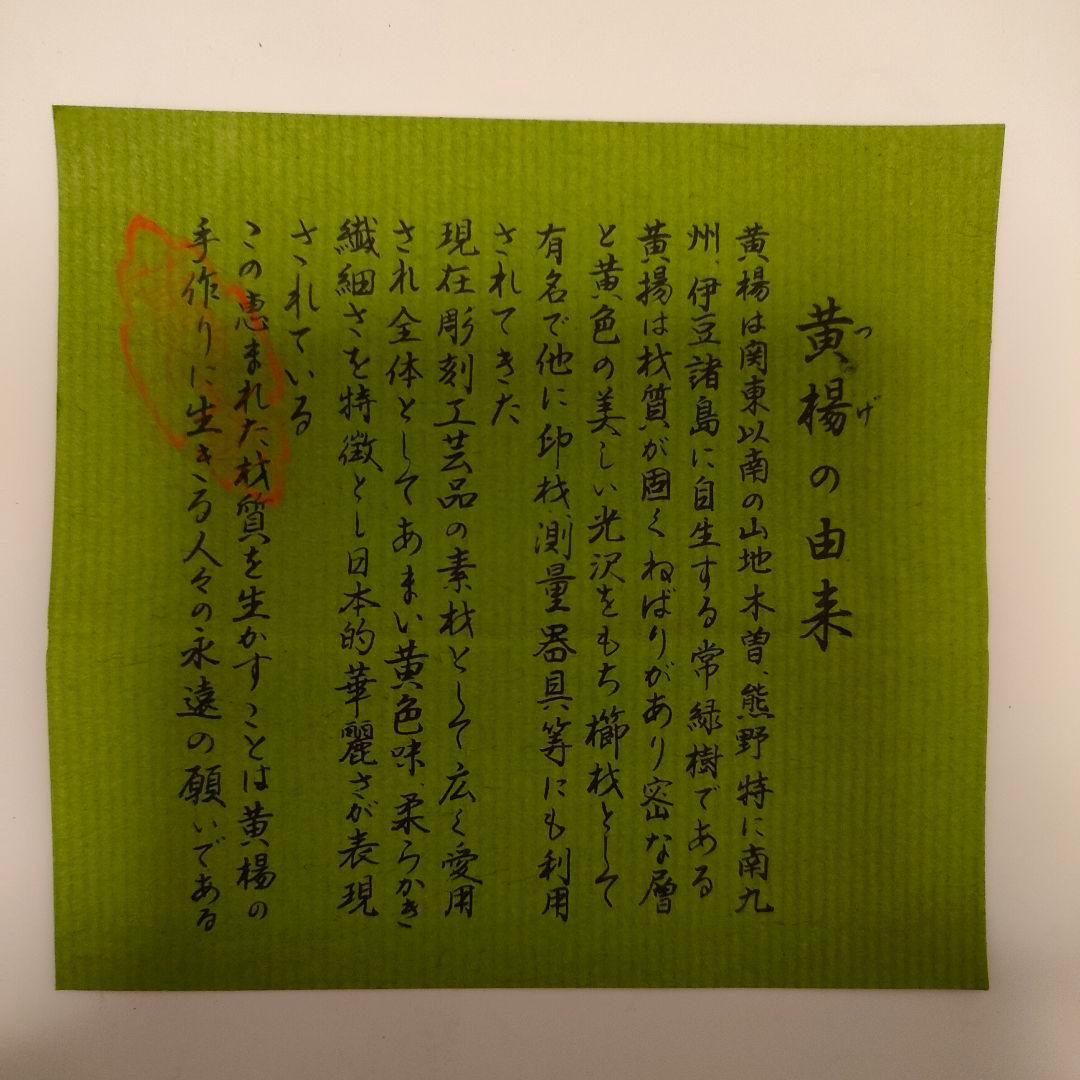 黄楊の由来
つげ
黄楊は関東以南の山地木曽、熊野特に南九
州、伊豆諸島に自生する常緑樹である
黄揚は材質が固くねばりがあり密な層
と黄色の美しい光沢をもち櫛材として
有名で他に印材、測量器具等にも利用
されてきた
現在彫刻工芸品の素材として広く愛用
され全体としてあまい黄色味、柔らかさ
繊細さを特徴とし日本的華麗さが表現
されている
この恵まれた材質を生かすことは黄楊の
手作りに生きる人々の永遠の願いである